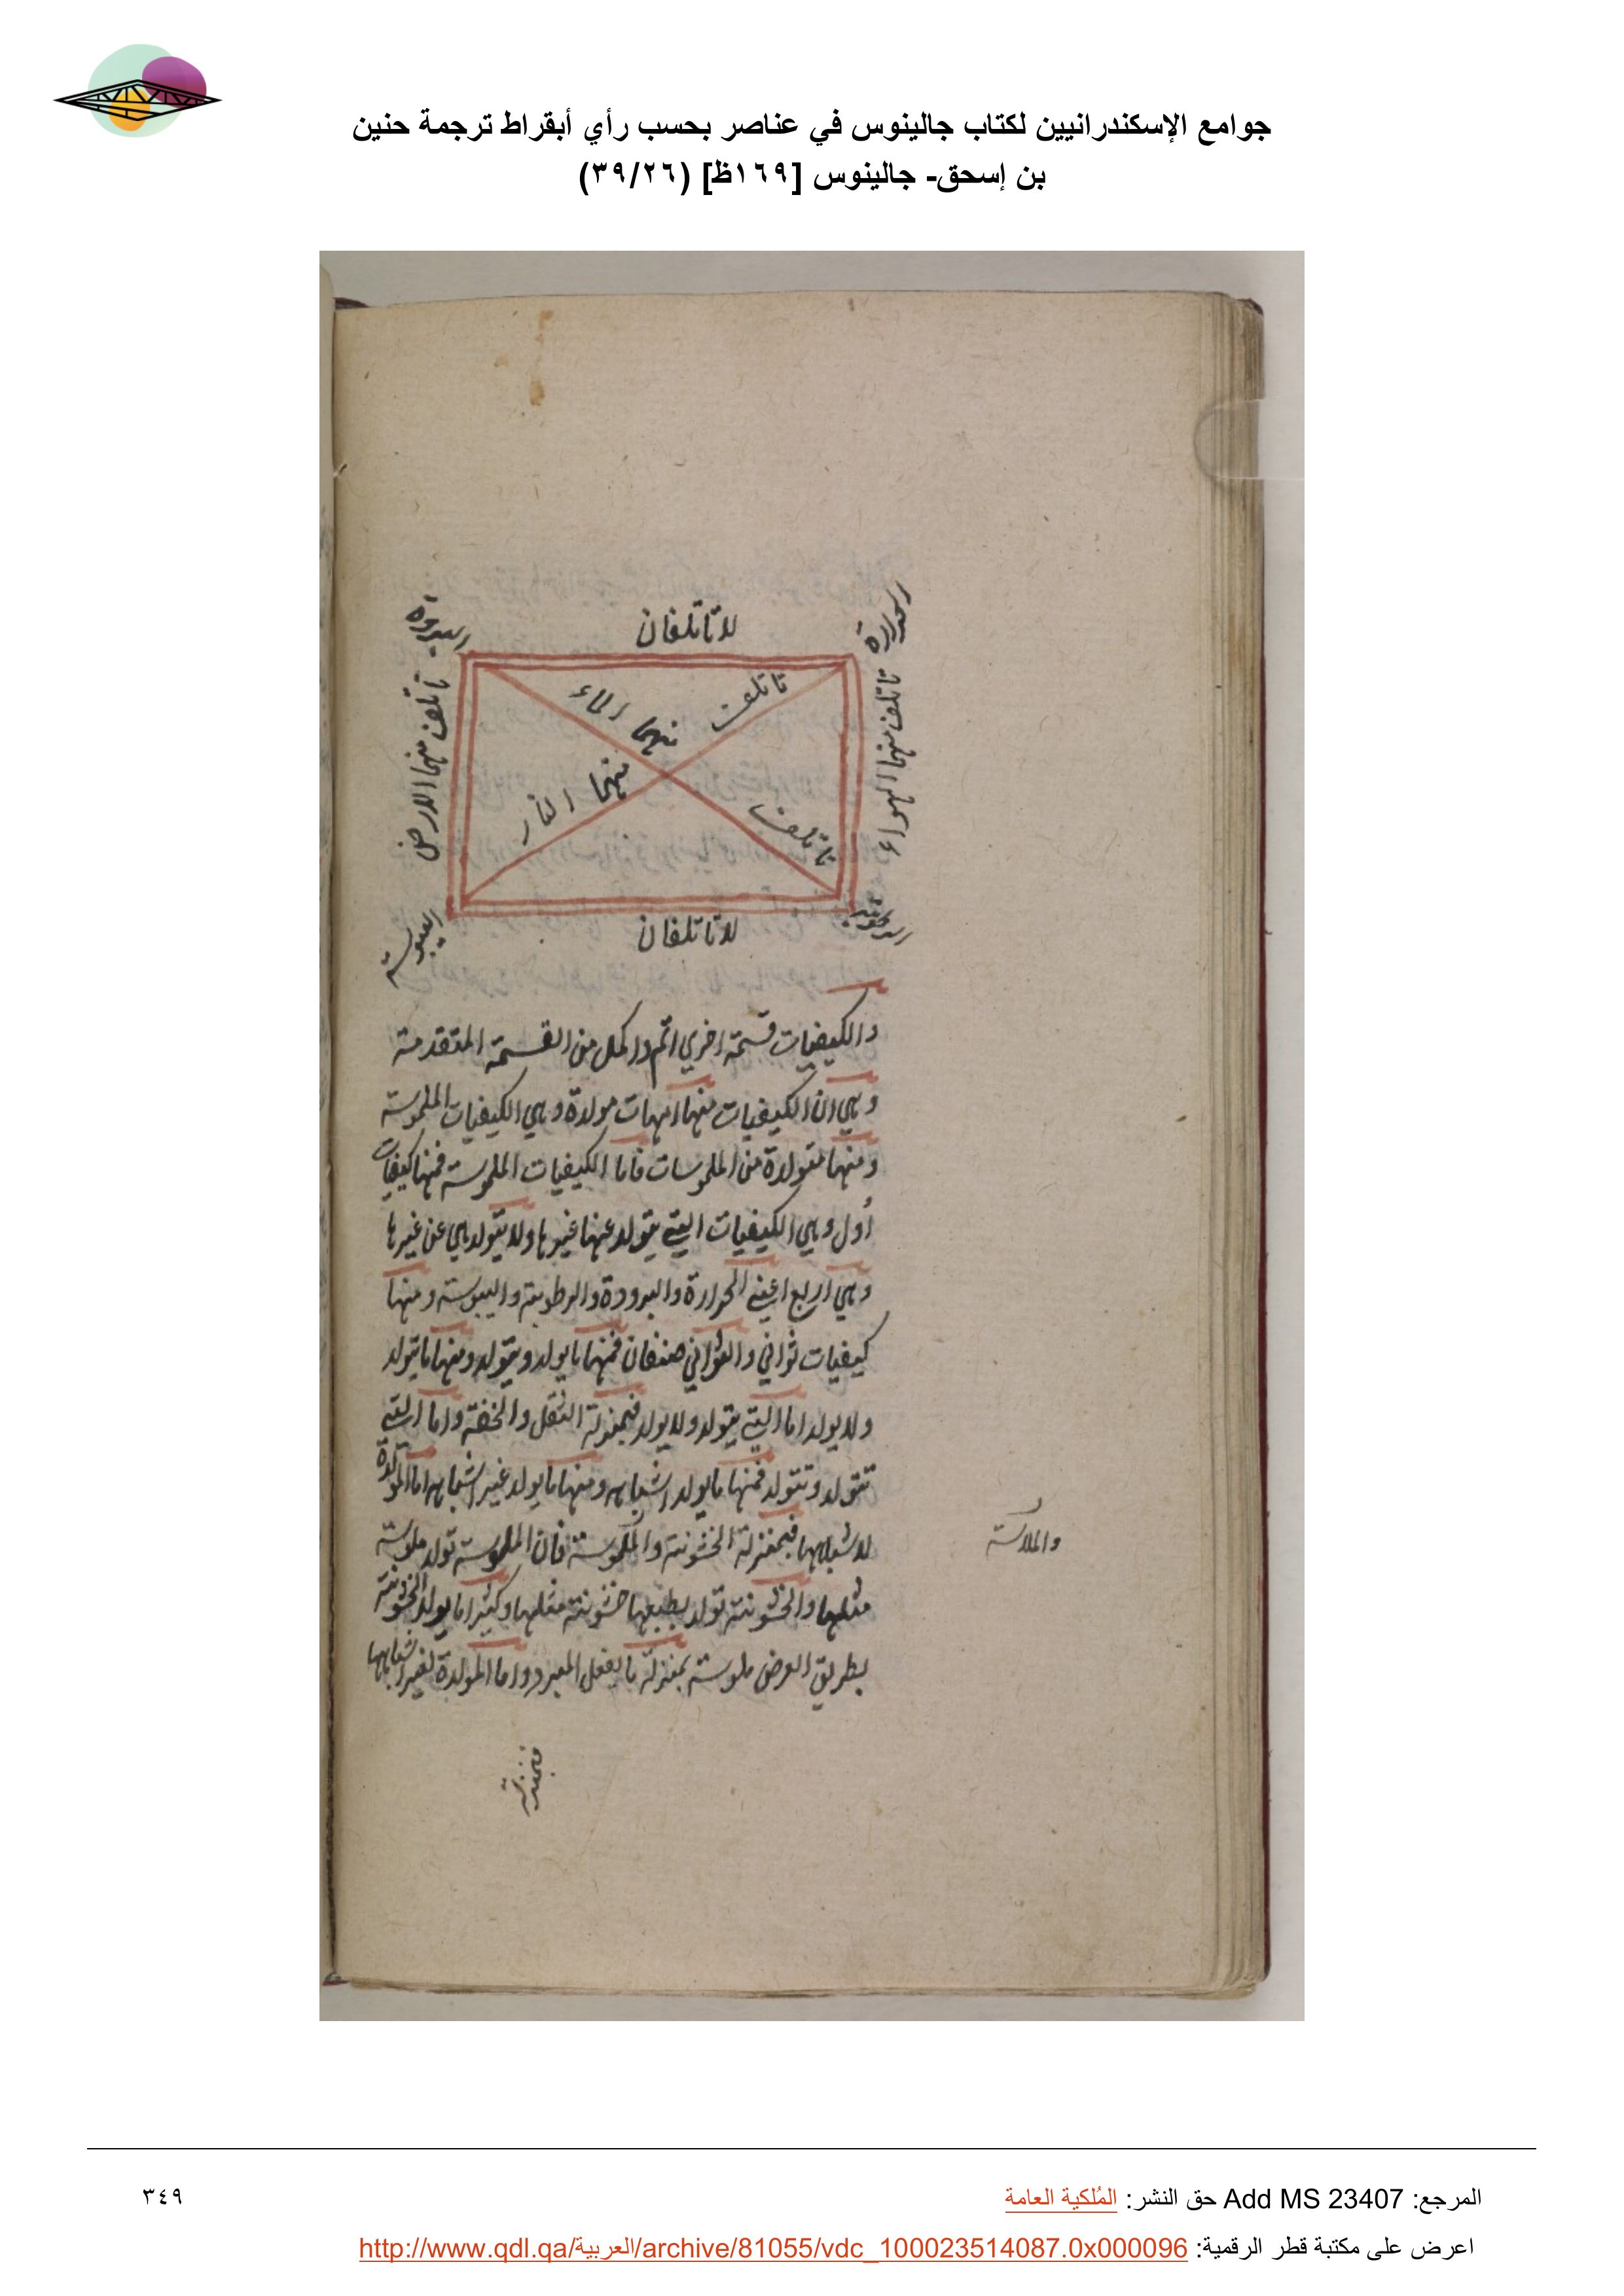 جوامع الإسكندرانيين لكتاب جالينوس في عناصر بحسب رأي أبقراط ترجمة حنين
بن إسحق- جالينوس [١٦٩ظ] (٣٩/٢٦)
لا تاتلفان
الحرارة
البرودة
تاتلف منهما الهواء
تاتلف منهما الارض
تاتلف منهما الماء
تاتلف منهما النار
الرطوبة
اليبوسة
لا تاتلفان
والكيفيات قسمة اخري اتم واكمل من القسمة المتقدمة
وهي ان الكيفيات منها امهات مولدة وهي الكيفيات الملموسة
ومنها متولدة من الملموسات فاما الكيفيات الملموسة فمنها كيفيات
أول وهي الكيفيات التي يتولد عنها غيرها ولا يتولد هي عن غيرها
وهي اربع اعني الحرارة والبرودة والرطوبة واليبوسة ومنها
كيفيات ثواني والثواني صنفان فمنها ما يولد ويتولد ومنها ما يتولد
ولا يولد اما التي يتولد ولا يولد فبمنزلة الثقل والخفة واما التي
تتولد وتتولد فمنها ما يولد اشباهه ومنها ما يولد غير اشباهه اما المولدة
لاشباهها فبمنزلة الخشونة والملموسة فان الملموسة تولد ملوسة
والملاسة
مثلها والخشونة تولد بطبعها خشونة مثلها وكثيرا ما يولد الخشونة
بطريق العرض ملوسة بمنزلة ما يفعل المبرد واما المولدة لغير اشباهها
فبمنزلة
المرجع: Add MS 23407 حق النشر: المُلكية العامة
٣٤٩
اعرض على مكتبة قطر الرقمية: http://www.qdl.qa/العربية/archive/81055/vdc_100023514087.0x000096